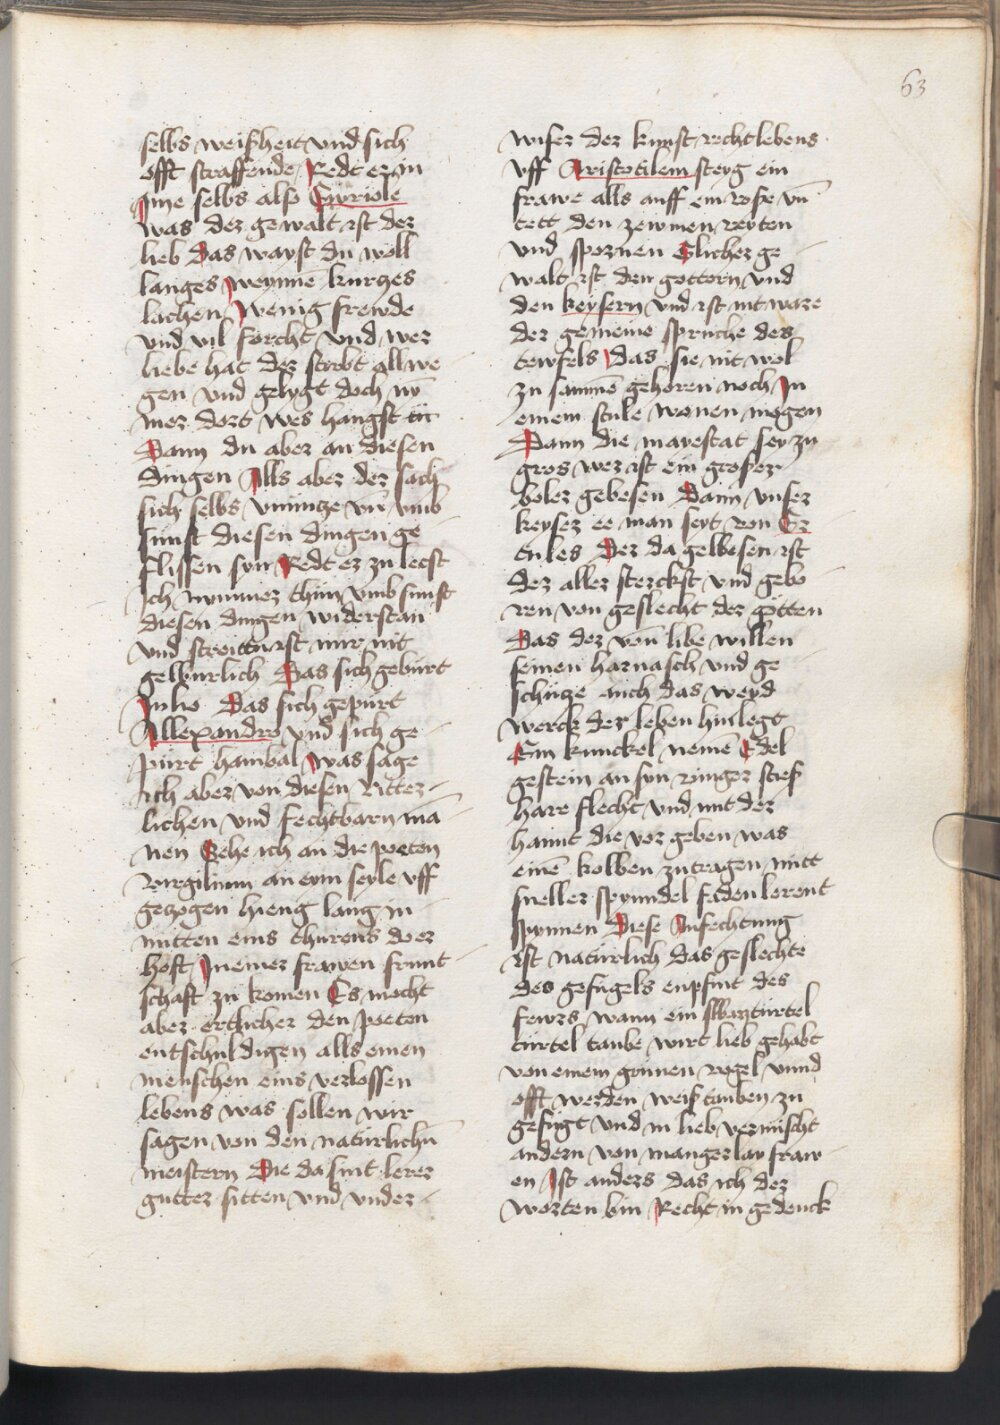 63
selbs weißheit vnd sich
offt straffende Redt er in
Jme selbs also Euriole
was der gewalt ist der
lieb Das wayst du woll
langes weynnē kurtzes
lachen wenig frewde
vnd vil forcht vnd wer
liebe hat der stirbt allwe
gen vnd gelygt doch nȳ
mer dort wes hangst tu
Dann du aber an diesen
dingen Alls aber der sach
sich selbs vnnutze vn̄ vmb
sunst diesen dingen ge
flissen syn Redt er zu letst
Ich nymmer thun vmb sunst
diesen dingen widerstan
vnd streittu ist mir nit
gelburlich Das sich geburt
Julio Das sich gepurt
Allexandro vnd sich ge
purt hanibal was sage
ich aber von diesen Ritter
lichen vnd fechtbarn mā
nen Sehe ich an die poeten
virgilium an eym seyle vff
gezogen hieng lang in
mitten eins thurens do er
hoft Jn einer frawen frunt
schaft zu komen Es mocht
aber ertlicher den poeten
entschuldigen alls einen
menschen eins verlossen
lebens was sollen wir
sagen von den naturlichn̄
meistern Die da sint lerer
gutter sitten vnd vnder
wiser der kunst recht lebens
vff Aristotilem steyg ein
frawe alls auff ein rosse vn̄
tett den zewmen reyten
vnd spornen Glicher ge
walt ist den gottorn vnd
den keysern vnd ist nit ware
der gemeine spruche des
tewfels Das sie nit wol
zu sammē gehoren noch Jn
einem stule wonen mogen
Dann die mayestat sey zu
gros wer ist ein grosser
boler gebesen Dann vnser
keyser ee man seyt von Er
cules Der da gelbesen ist
der aller sterckst vnd gebo
ren von geslecht der gotten
Das der von libe willen
seinen harnasch vnd ge
schutze auch das weyd
werck der leben hinlegt
Ein kunckel nemē Edel
gestein an syn vinger stieß
hare flecht vnd mit der
hannt die vor geben was
einē kolben zutragen mitt
sneller spynndel faden lerent
spynnen Diese Anfechtung
ist naturlich das geslechte
des gefugels enpfint des
fewrs wann ein swarzturtel
turtel taube wirt lieb gehabt
von einem grunen vogel vnnd
offt werden weiß tauben zu
gefugt vnd in lieb vermischt
andern von mangerlay fraw
en Jst anders das ich der
worten bin Recht in gedenck